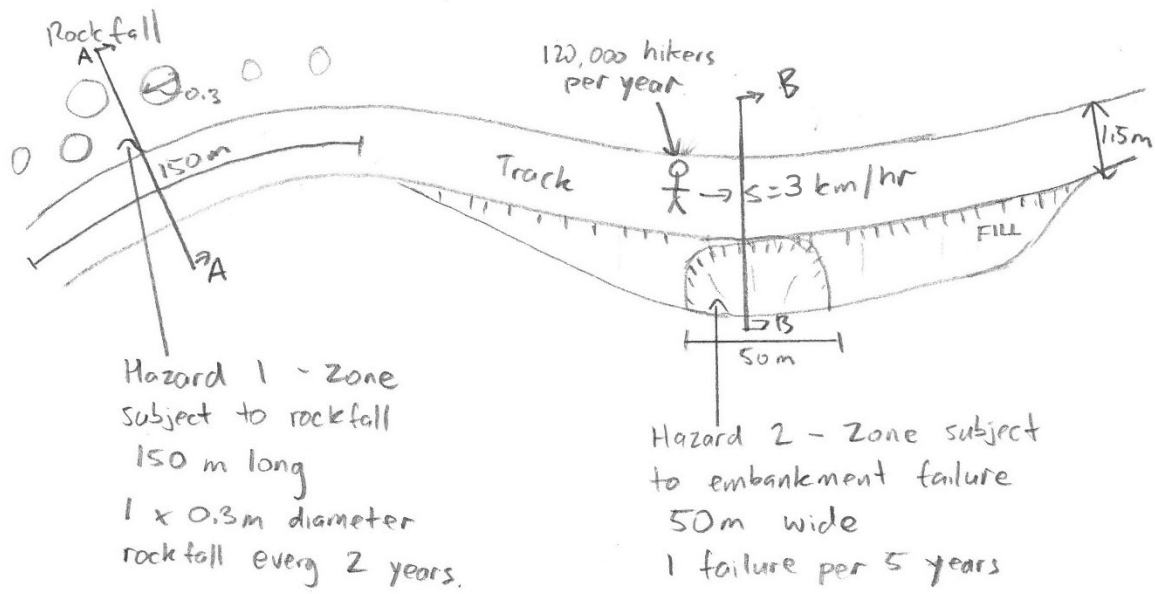 Rockfall
A
0.3
150m
A
120,000 hikers
per year
B
Track
S=3 km/hr
1.5m
FILL
B
50m
Hazard 1 - Zone
subject to rockfall
150 m long
1 x 0.3m diameter
rockfall every 2 years.
Hazard 2 - Zone subject
to embankment failure
50m wide
1 failure per 5 years